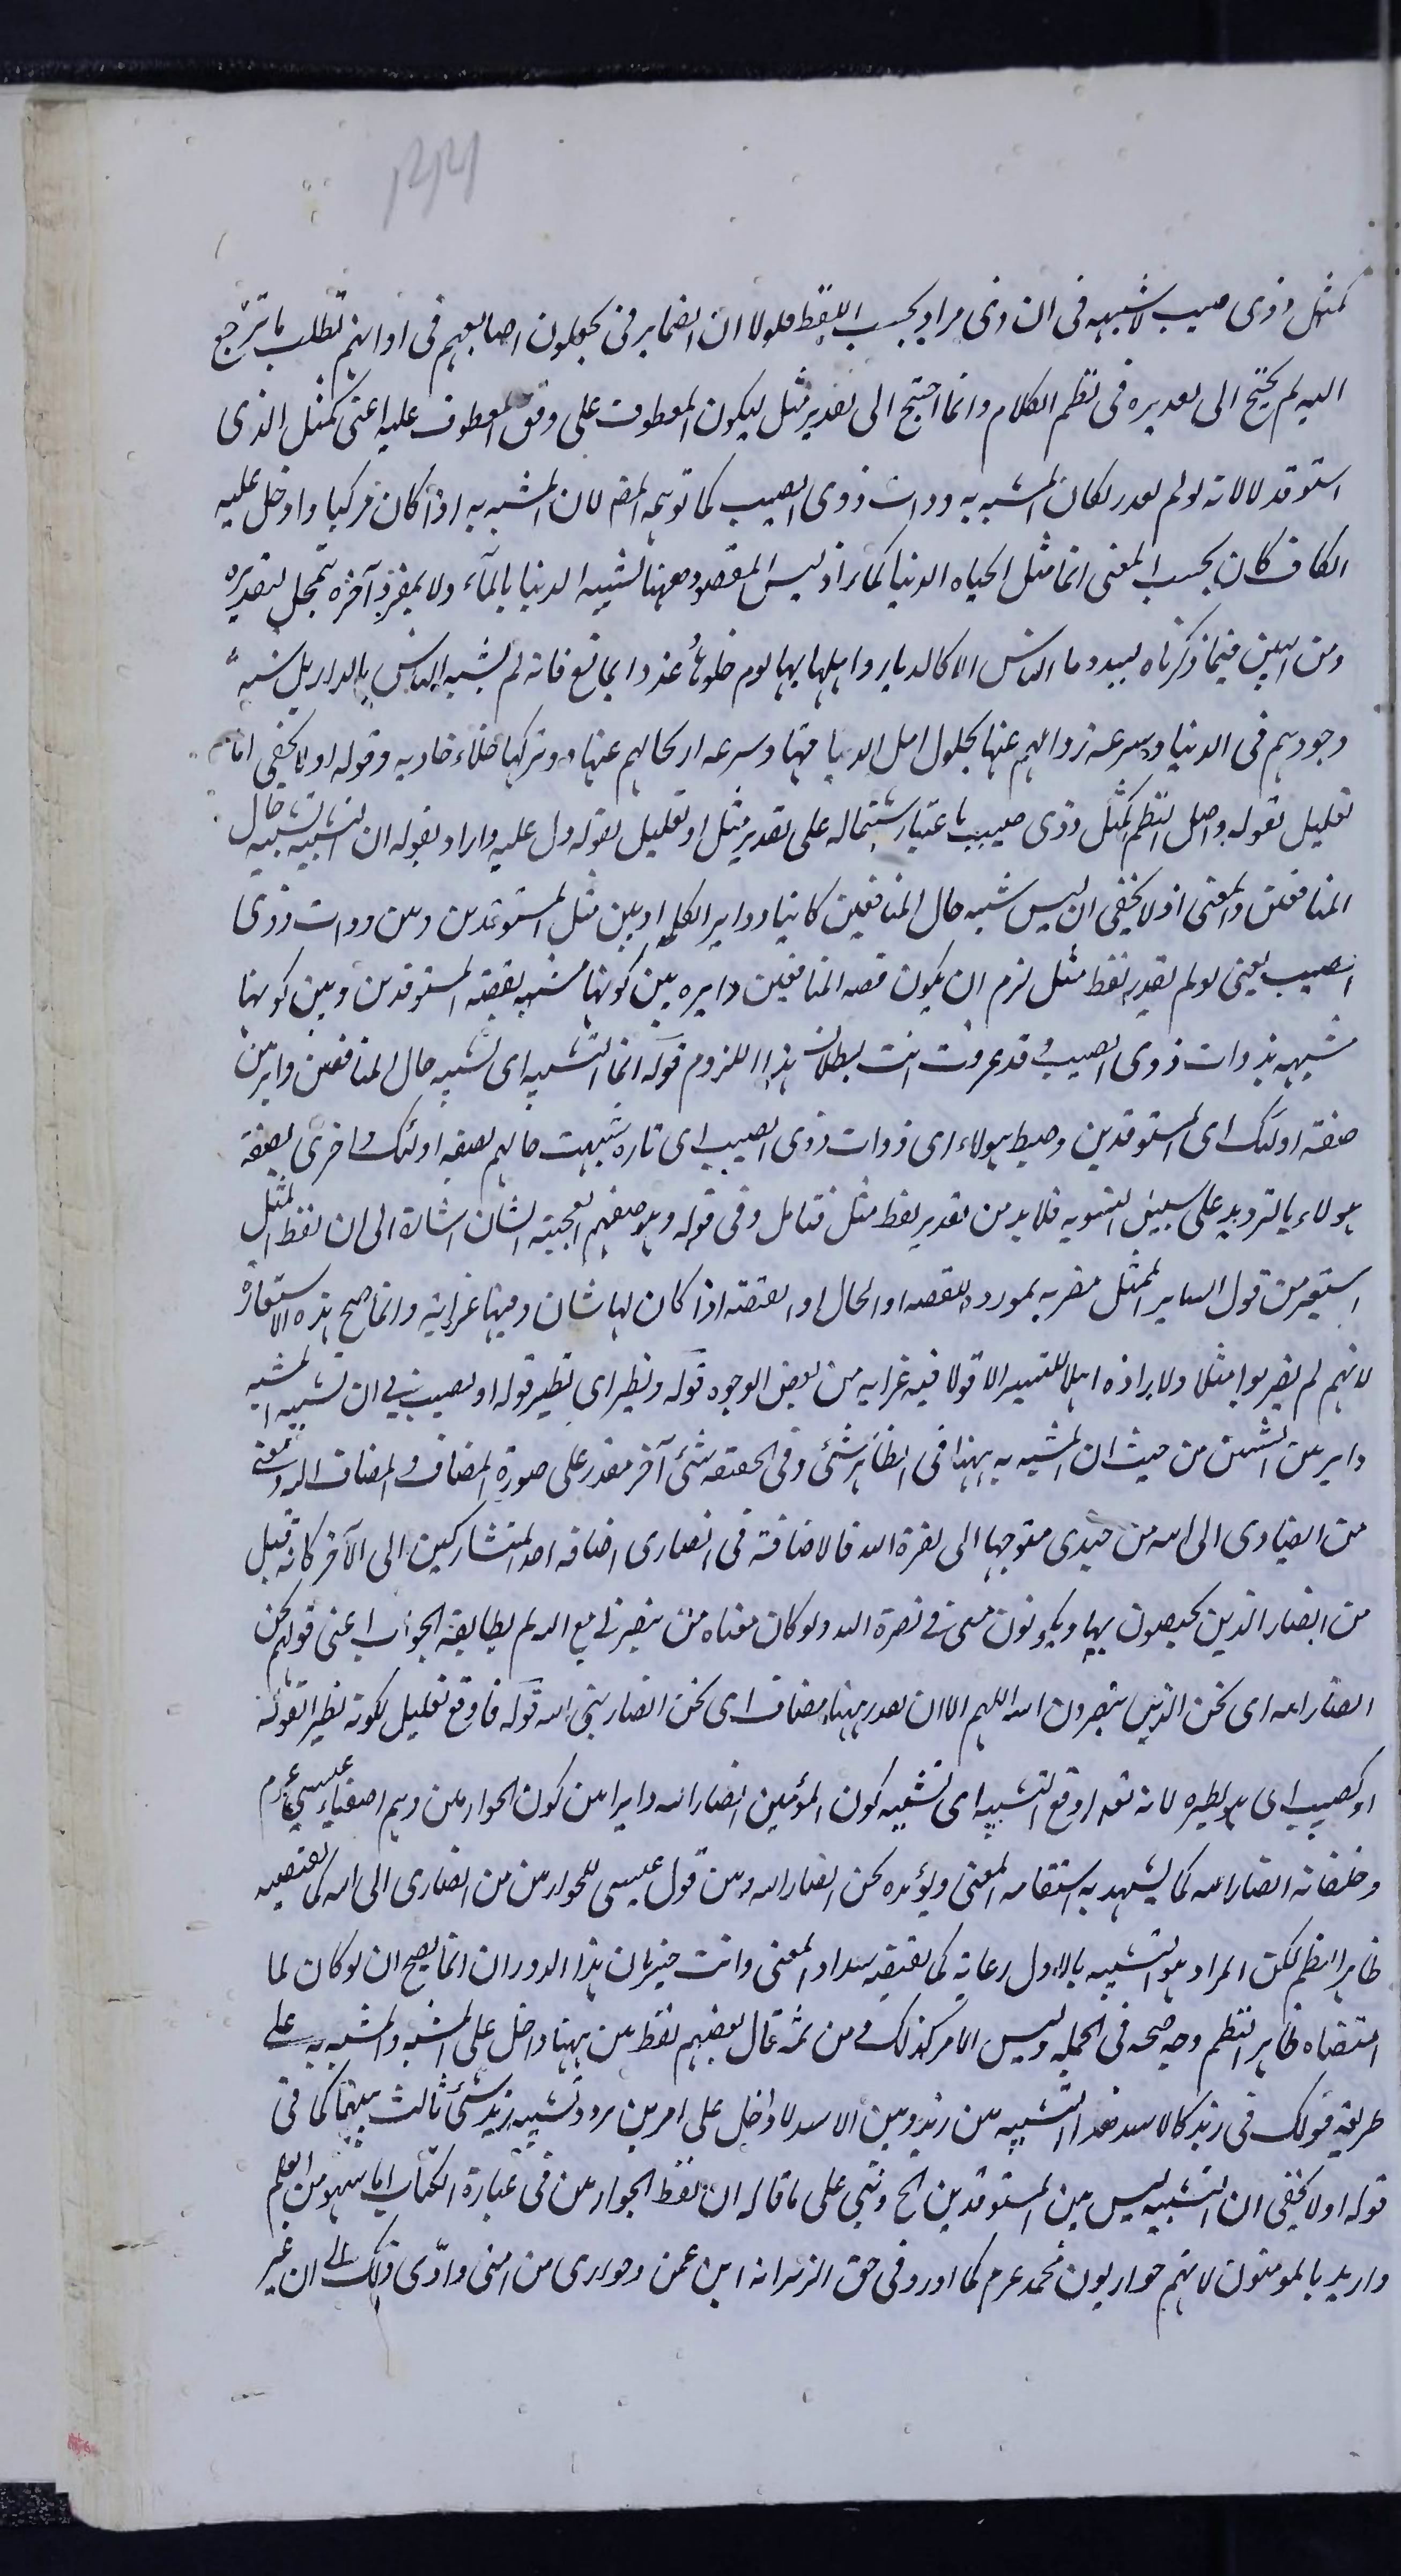 كمثل ذوى صيب لا شبهه فى ان ذوى مراد بحسب اللفظ فلولا ان الضماير فى يجعلون اصابعهم فى اذانهم تطلب ما ترجع
اليه لم يحتج الى تقديره فى نظم الكلام وانما احتيج الى تقدير مثل ليكون المعطوف على وفق المعطوف عليه اعنى كمثل الذى
استوقد لا لانه لو لم يقدر لكان المشبه به ذوات ذوى الصيب كما توهمه المصـ لان المشبه به اذا كان مركبا وادخل عليه
الكاف كان بحسب المعنى انما مثل الحياه الدنيا كماء اذ ليس المقصود ههنا تشبيه الدنيا بالماء ولا بمفرد آخر يتمحل لتقديره
ومن البين فيما ذكرناه لبيد وما الناس الا كالديار واهلها بها يوم حلوها وغدوا بلاقع فانه لم يشبه الناس بالديار بل شبه
وجودهم فى الدنيا وسرعه زوالهم عنها بحلول اهل الديار فيها وسرعه ارتحالهم عنها وتركها خلاء خاويه وقوله او لا يخفى اما
تعليل لقوله واصل النظم كمثل ذوى صيب باعتبار اشتماله على تقدير مثل او تعليل لقوله دل عليه واراد بقوله ان التشبيه تشبيه حال
المنافقين والمعنى اذ لا يخفى ان ليس تشبيه حال المنافقين كاينا ودايرا بين مثل المستوقدين وبين ذوات ذوى
الصيب يعنى لو لم يقدر لفظ مثل لزم ان يكون قصه المنافقين دايره بين كونها مشبهه بقصه المستوقدين وبين كونها
مشبهه بذوات ذوى الصيب وقد عرفت انت بطلان هذا اللزوم قوله انما التشبيه اى تشبيه حال المنافقين داير بين
صفة اولئك اى المستوقدين وصيب هولاء اى ذوات ذوى الصيب اى تاره شبهت حالهم بصفه اولئك واخرى بصفة
هولاء بالترديد على سبيل التسويه فلا بد من تقدير لفظ مثل فتامل وفى قوله وهو صفتهم العجيبة الشان اشارة الى ان لفظ المثل
استعير من قول الساير الممثل مضربه بمورده للقصه او الحال او الصفة اذا كان لها شان وفيها غرابة وانما صح هذه الاستعارة
لانهم لم يضربوا مثلا ولا راوه اهلا للتسيير الا قولا فيه غرابه من بعض الوجوه قوله ونظير اى نظير قوله او كصيب فى ان تشبيه المشبه
داير بين الشيئين من حيث ان المشبه به ههنا فى الظاهر شئ وفى الحقيقه شئ آخر مقدر على صورة المضاف والمضاف اليه ومعنى
من انصارى الى الله من جندى متوجها الى نصرة الله فالاضافة فى انصارى اضافه احد المتشاركين الى الآخر كانه قيل
من انصار الذين يختصون بى ويكونون معى فى نصرة الله ولو كان معناه من ينصرنى مع الله لم يطابقه الجواب اعنى قولهم نحن
انصار الله اى نحن الذين ينصرون الله اللهم الا ان يقدر ههنا مضاف اى نحن انصار نبى الله قوله فاوقع تعليل لكونه نظيرا لقوله
او كصيب اى هو نظيره لانه تعالى اوقع التشبيه اى تشبيه كون المؤمنين انصار الله دايرا بين كون الحواريين وهم اصفياء عيسى عم
وخلصانه انصار الله كما يشهد به استقامه المعنى ويؤيده نحن انصار الله وبين قول عيسى للحواريين من انصارى الى الله كما يقتضيه
ظاهر النظم لكن المراد هو التشبيه بالاول رعاية كما يقتضيه سداد المعنى وانت خبير بان هذا الدوران انما يصح ان لو كان لما
اقتضاه ظاهر النظم وجه صحه فى الجمله وليس الامر كذلك ومن ثمة قال بعضهم لفظ بين ههنا داخل على المشبه والمشبه به على
طريقة قولك فى زيد كالاسد هذا التشبيه بين زيد وبين الاسد لا داخل على امرين يردد تشبيه زيد شئ ثالث بينهما كما فى
قوله او لا يخفى ان التشبيه ليس بين المستوقدين الخ وبنى على ما قاله ان لفظ الحواريين فى عبارة الكتاب اما سهو من القلم
واريد بالمومنون لانهم حواريون محمد عم كما اورد فى حق الزبير انه ابن عمتى وحوارى من امتى وادى ذلك الى ان غير